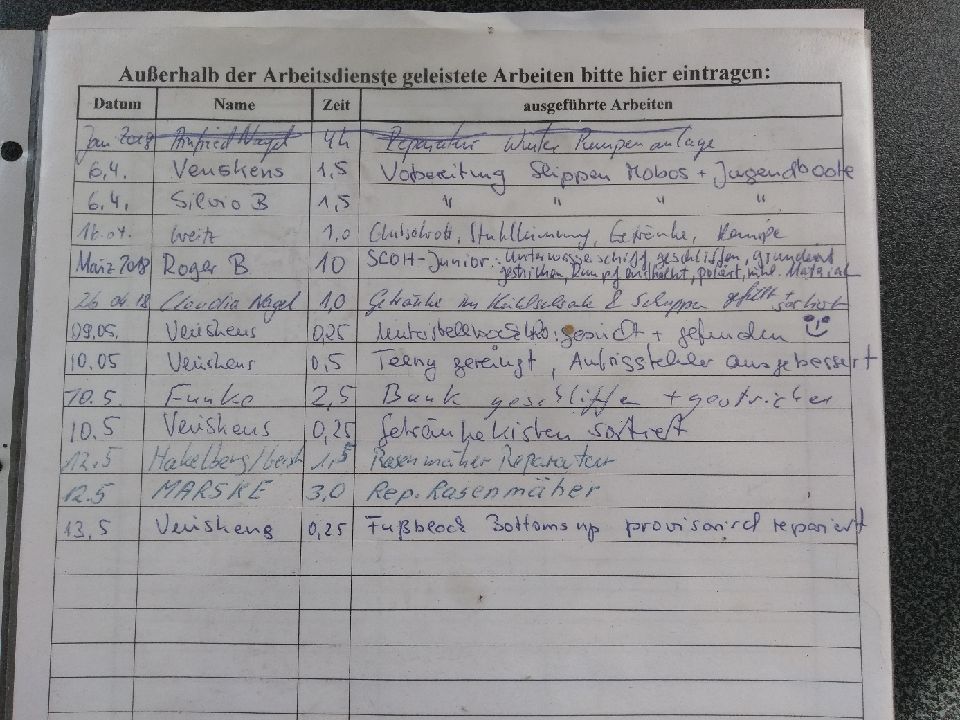 Außerhalb der Arbeitsdienste geleistete Arbeiten bitte hier eintragen:
Datum Name Zeit ausgeführte Arbeiten
Jan 2018 Nagel 4h Reparatur Winter Rampenanlage
6.4. Veriskens 1,5 Vobereitung Slippen Mobos + Jugendboote
6.4. Silvio B 1,5 " " " "
Weitz 1,0 Getränke, Rampe
März 2018 Roger B 10 SCOH-Junior: Unterwasserschiff geschliffen, grundiert
gestrichen, Rumpf poliert, inkl. Material
26 04 18 Claudia Nagel 1,0 Getränke im Kühlschrank & Schuppen gefüllt + sortiert
09.05. Veriskens 0,25 gesucht + gefunden
10.05 Veriskens 0,5 Teeny gereinigt, ausgebessert
10.5 Funke 2,5 Bank geschliffen + gestrichen
10.5 Veriskens 0,25 Getränkekisten sortiert
12.5 Hakelberg/ 1,5 Rasenmäher Reparatur
12.5 MARSKE 3,0 Rep. Rasenmäher
13,5 Veriskens 0,25 Fußblock Bottoms up provisorisch repariert